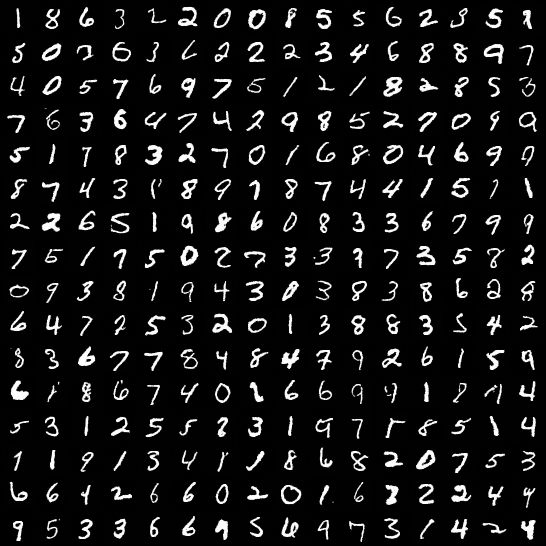 1 8 6 3 2 2 0 0 8 5 5 6 2 3 5 1
5 0 2 6 3 6 2 2 2 3 4 6 8 8 9 7
4 0 5 7 6 9 7 5 1 2 1 8 2 8 5 3
7 6 3 6 4 7 4 2 9 8 5 2 7 0 9 9
5 1 7 8 3 2 7 0 1 6 8 0 4 6 9 9
8 7 4 3 1 8 9 1 8 7 4 4 1 5 1 1
2 2 6 5 1 9 8 6 0 8 3 3 6 7 9 9
7 5 1 7 5 0 2 7 3 3 9 7 3 5 8 2
0 9 3 8 1 9 4 3 8 3 8 3 8 6 2 8
6 4 7 2 5 3 2 0 1 3 8 8 3 5 4 2
8 3 6 7 7 8 4 8 4 7 9 2 6 1 5 9
6 8 6 7 4 0 2 6 6 9 9 1 9 4
5 3 1 2 5 5 8 3 1 9 7 8 5 1 4
1 1 9 1 3 4 1 1 8 6 8 2 0 7 5 3
6 6 4 2 6 6 0 2 0 1 6 2 2 4 4
9 5 3 3 6 6 9 5 6 9 7 3 1 4 2 4